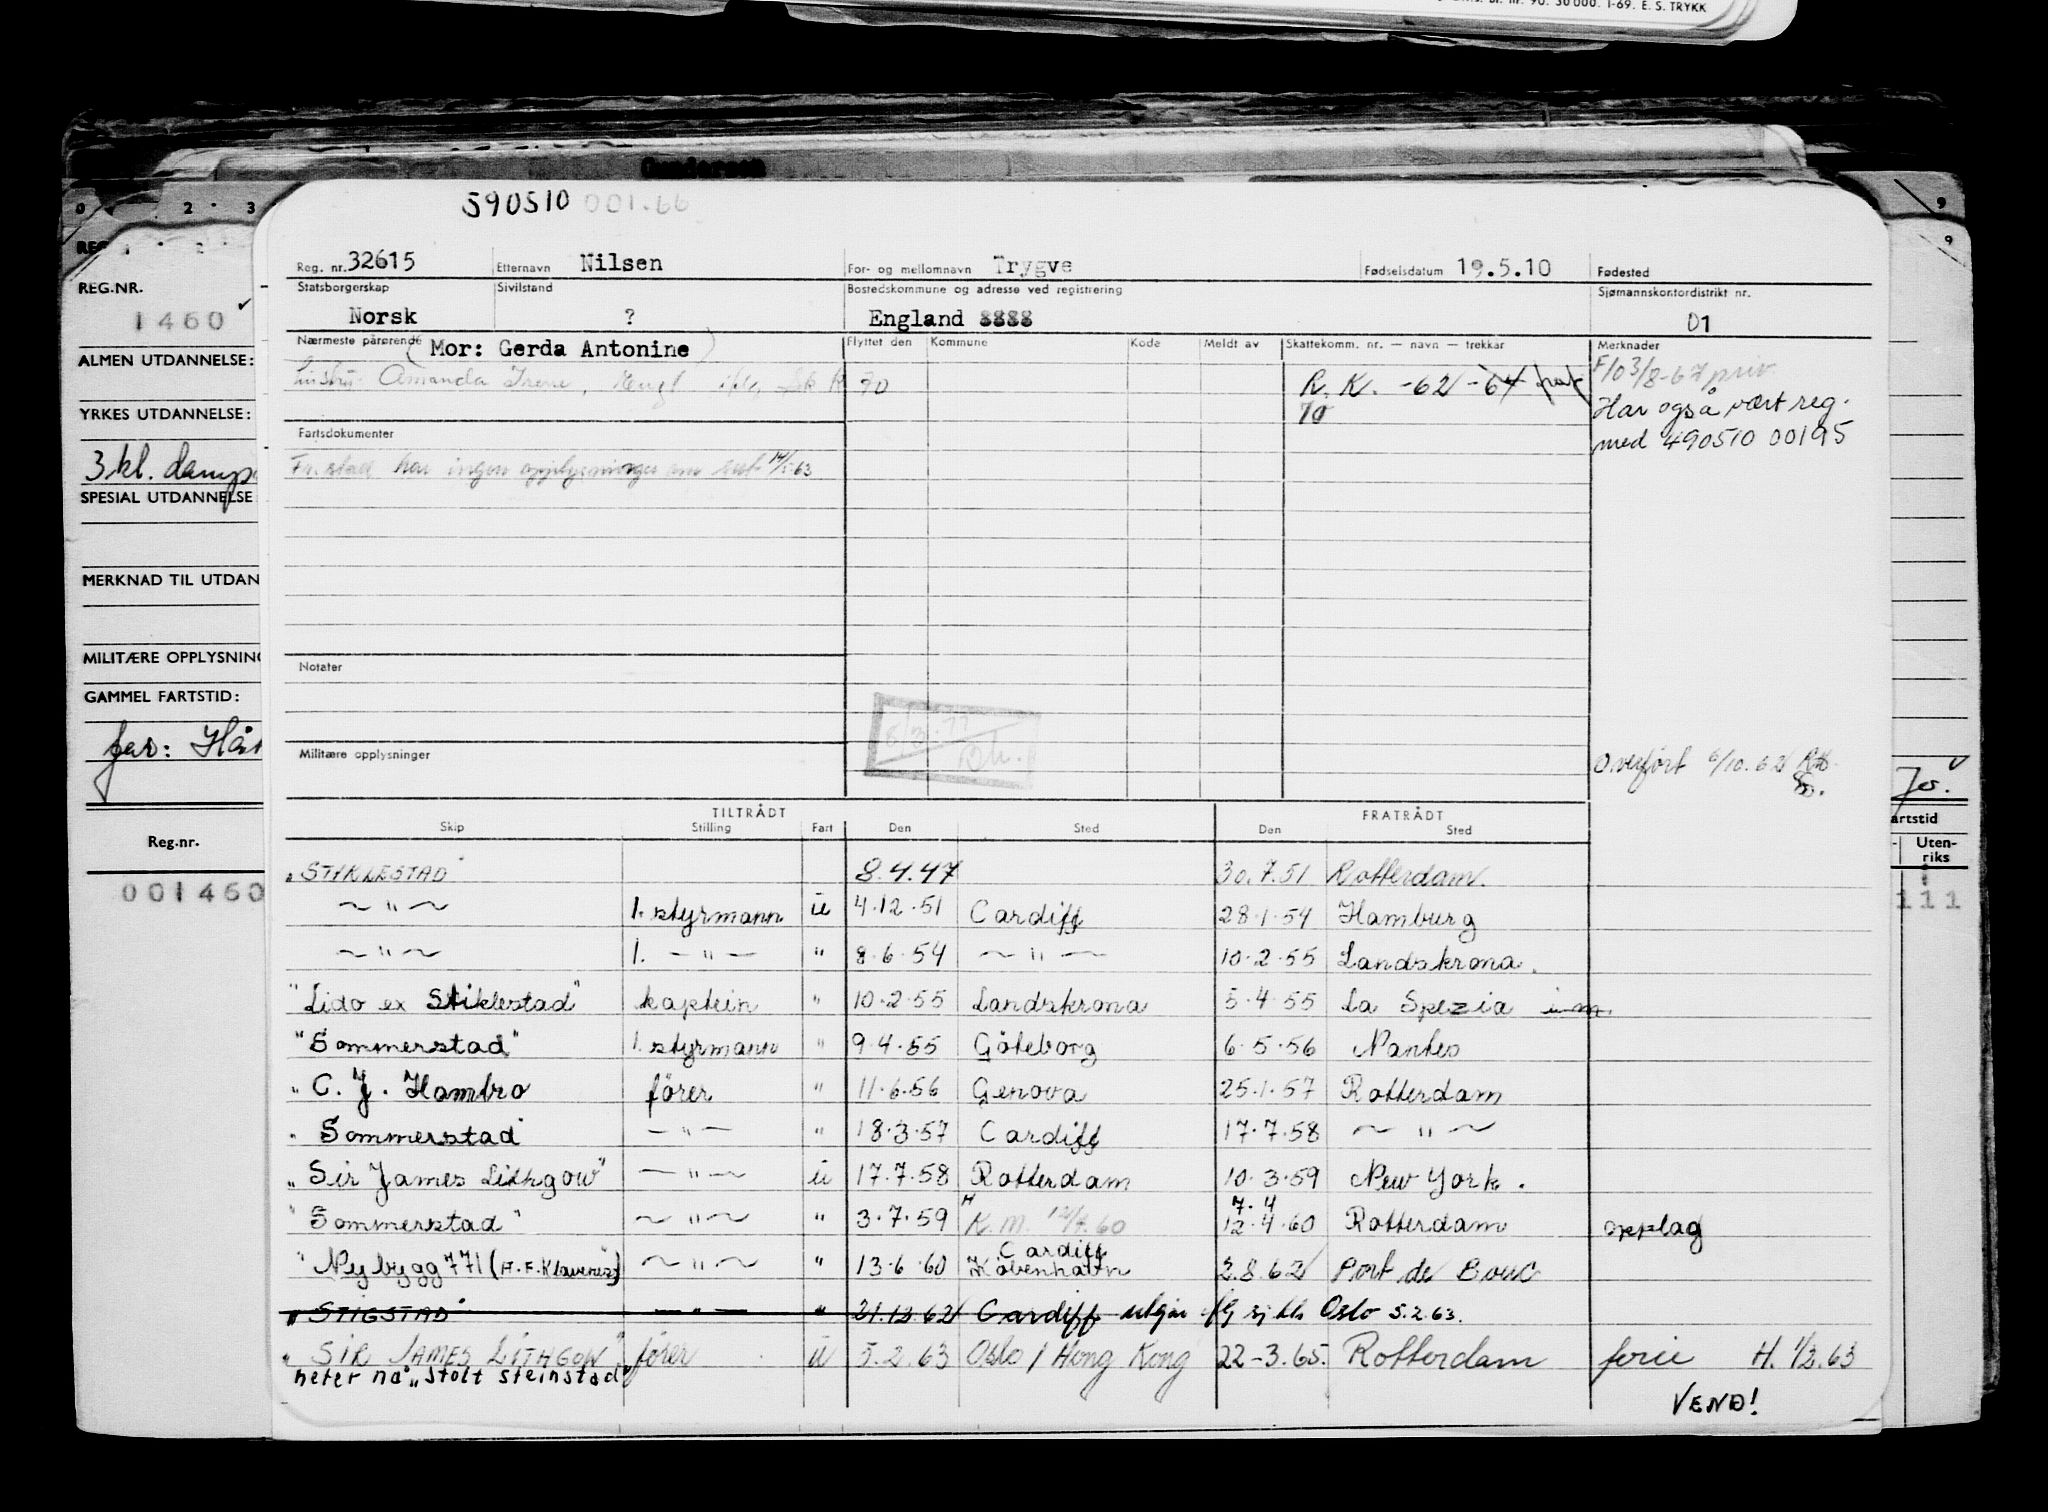 nr. 90. 30 000. 1-69. E. S. TRYKK
Gundersen
0 2 3
9
9
REG.NR.
1460
ALMEN UTDANNELSE:
YRKES UTDANNELSE:
3 kl. damp
SPESIAL UTDANNELSE
MERKNAD TIL UTDAN
MILITÆRE OPPLYSNING
GAMMEL FARTSTID:
far: Hå
Reg.nr.
001460
artstid
Uten-
riks
111
590510 001.66
Reg. nr. 32615 Etternavn Nilsen For- og mellomnavn Trygve Fødselsdatum 19.5.10 Fødested
Statsborgerskap Sivilstand Bostedskommune og adresse ved registrering Sjømannskontordistrikt nr.
Norsk ? England 8888 01
Nærmeste pårørende (Mor: Gerda Antonine) Flyttet den Kommune Kode Meldt av Skattekomm. nr. — navn — trekkår Merknader
Hustru Amanda Irene, 70 R.K. -62 -64 F/o 3/8-67 priv
70 Har også vært reg.
Fartsdokumenter med 490510 00195
Fr.stad har ingen opplysninger om 14/5-63
Notater
8/3.77
Militære opplysninger
Overført 6/10.62
TILTRÅDT FRATRÅDT
Skip Stilling Fart Den Sted Den Sted
"STIKLESTAD" 8.4.47 30.7.51 Rotterdam.
~ " ~ 1. styrmann u 4.12.51 Cardiff 28.1.54 Hamburg
~ " ~ 1. — " — " 8.6.54 ~ " ~ 10.2.55 Landskrona.
"Lido ex Stiklestad" kaptein " 10.2.55 Landskrona 5.4.55 La Spezia
"Sommerstad" 1. styrmann " 9.4.55 Göteborg 6.5.56 Nantes
" C. J. Hambro förer " 11.6.56 Genova 25.1.57 Rotterdam
" Sommerstad — " — " 18.3.57 Cardiff 17.7.58 ~ " ~
"Sir James Lithgow" — " ~ u 17.7.58 Rotterdam 10.3.59 New York.
7.4
"Sommerstad" ~ " ~ " 3.7.59 K.M. 12/4.60 12.4.60 Rotterdam opplag
Cardiff
"Nybygg 771 (A.F. Klaveness) ~ " ~ " 13.6.60 Köbenhavn 2.8.62 Port de Bouc
"STIGSTAD" — " — " 21.12.62 Cardiff utgår Oslo 5.2.63.
"SIR JAMES LITHGOW" förer u 5.2.63 Oslo / Hong Kong 22-3.65. Rotterdam ferie H. 1/3.63
heter nå "stolt steinstad"
VEND!